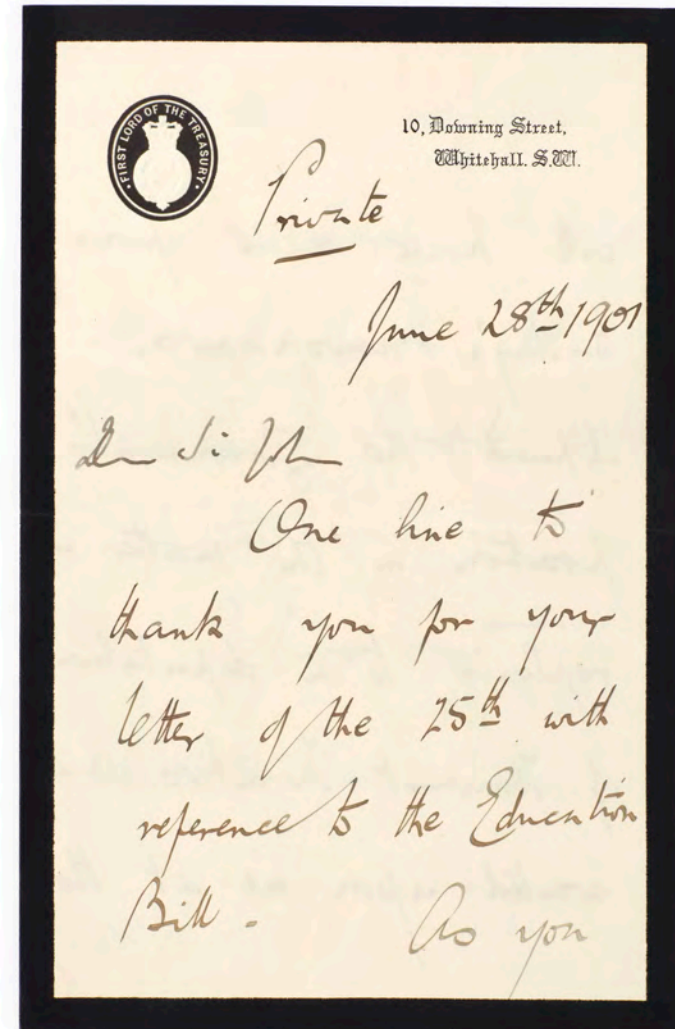 FIRST LORD OF THE TREASURY
10, Downing Street,
Whitehall. S.W.
Private
June 28th 1901
Dear Sir John
One line to
thank you for your
letter of the 25th with
reference to the Education
Bill. As you